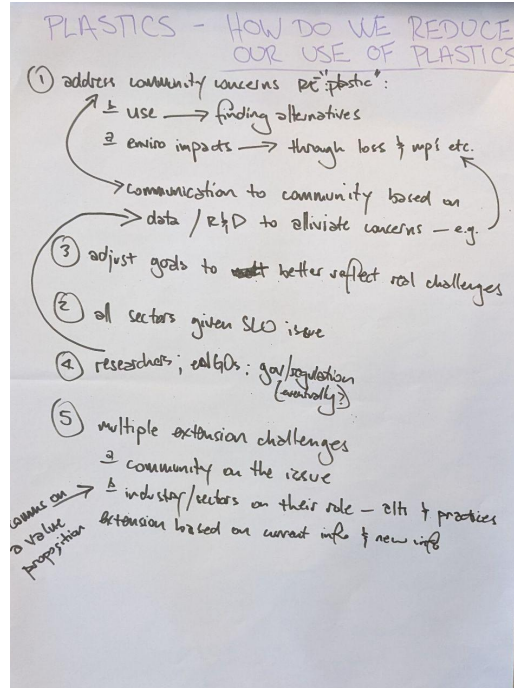 PLASTICS - HOW DO WE REDUCE
OUR USE OF PLASTICS
① address community concerns RE "plastic":
b use → finding alternatives
a enviro impacts → through loss & mp's etc.
communication to community based on
data / R&D to alliviate concerns - e.g.
③ adjust goals to better reflect real challenges
② all sectors given SLO issue
④ researchers; eNGOs; gov/regulation
(eventually?)
⑤ multiple extension challenges
a community on the issue
b industry/sectors on their role - alts & practices
extension based on current info & new info
comms on
a value
proposition